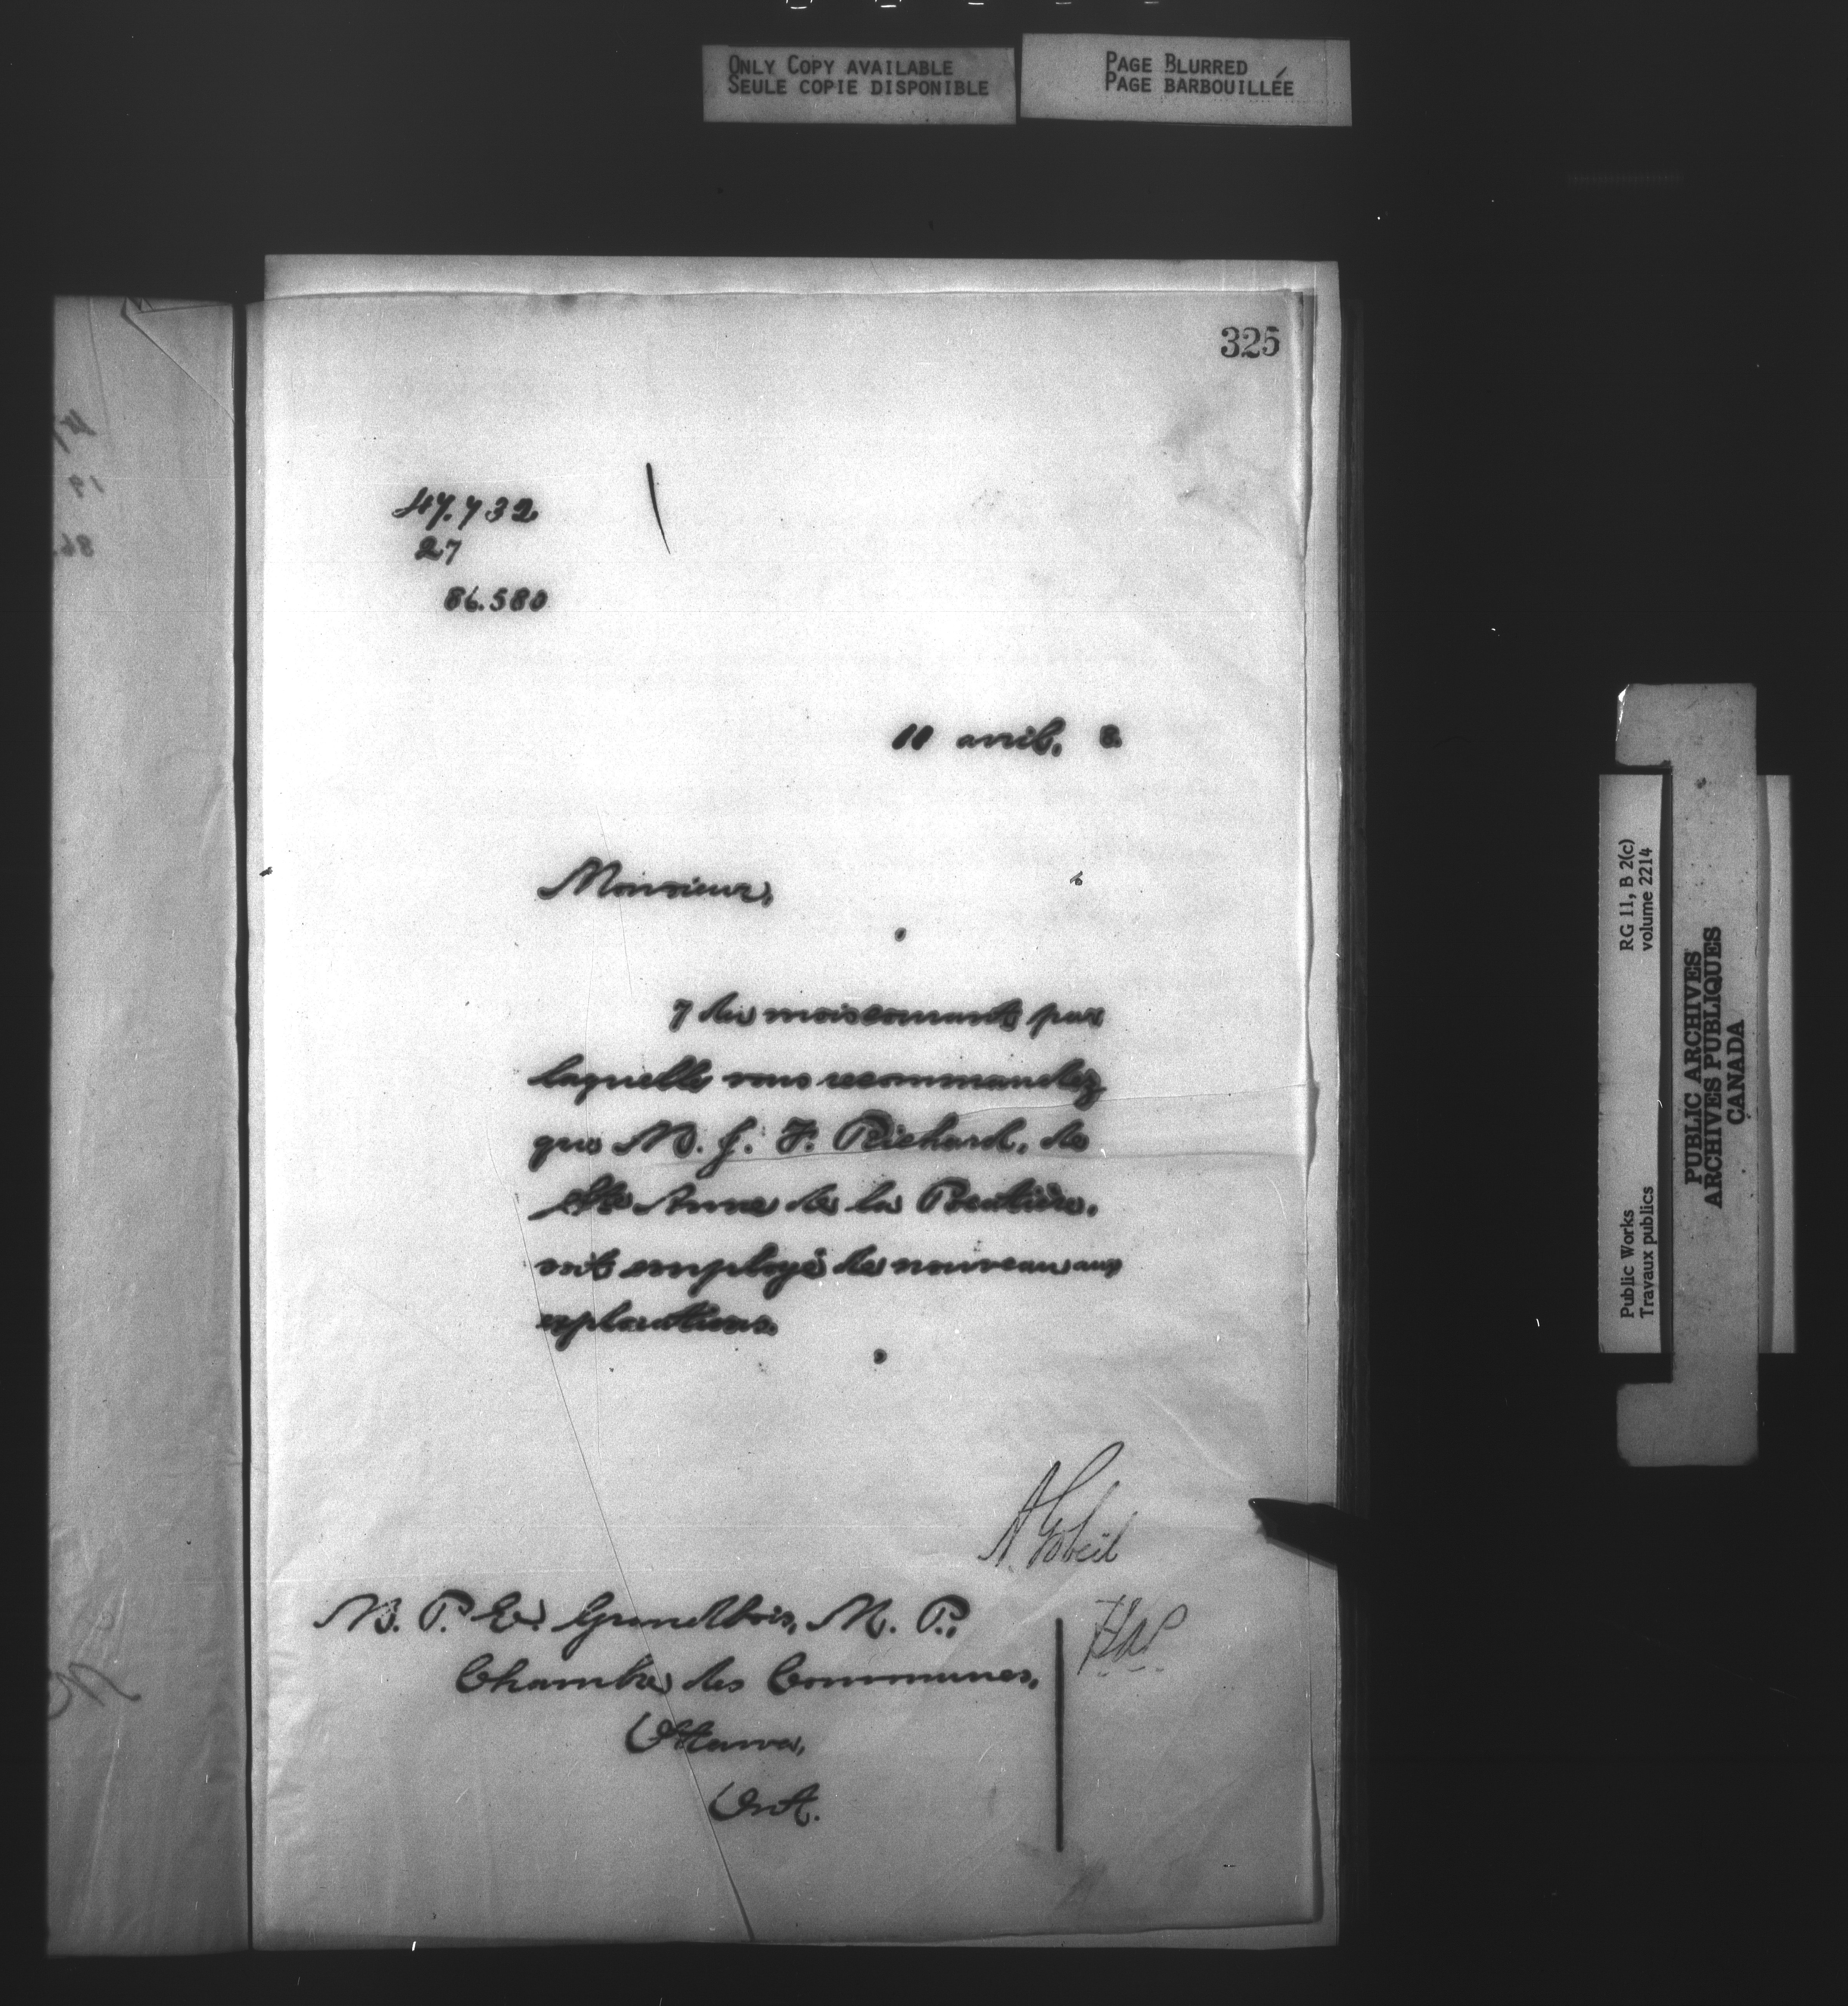 ONLY COPY AVAILABLE
SEULE COPIE DISPONIBLE
PAGE BLURRED
PAGE BARBOUILLÉE
325
47.732
27
86.580
11 avril, 8.
Monsieur,
7 du mois courant par
laquelle vous recommandez
que M. J. F. Richard, de
Ste Anne de la Pocatière,
soit employé de nouveau aux
explorations.
A Gobeil
M. P. E. Grandbois, M. P.,
Chambre des Communes,
Ottawa,
Ont.
RG 11, B 2(c)
volume 2214
Public Works
Travaux publics
PUBLIC ARCHIVES
ARCHIVES PUBLIQUES
CANADA